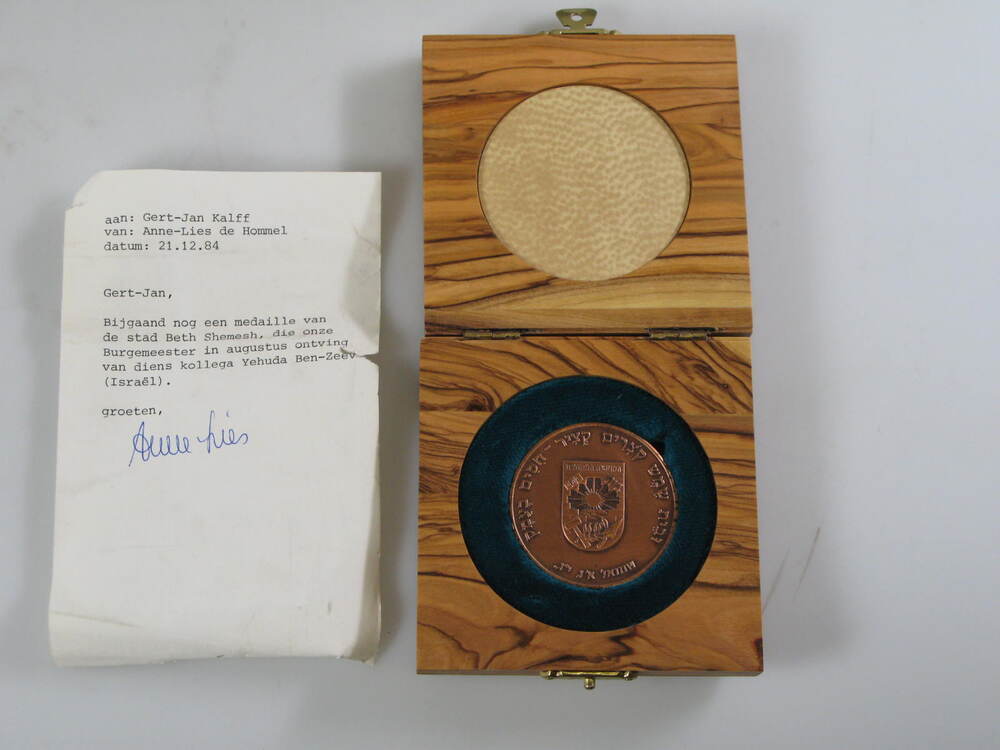 aan: Gert-Jan Kalff
van: Anne-Lies de Hommel
datum: 21.12.84
Gert-Jan,
Bijgaand nog een medaille van
de stad Beth Shemesh, die onze
Burgemeester in augustus ontving
van diens kollega Yehuda Ben-Zeev
(Israël).
groeten,
Anne-Lies
ובית שמש קצרים קציר-חטים בעמק
שמואל א'ג, י"ג